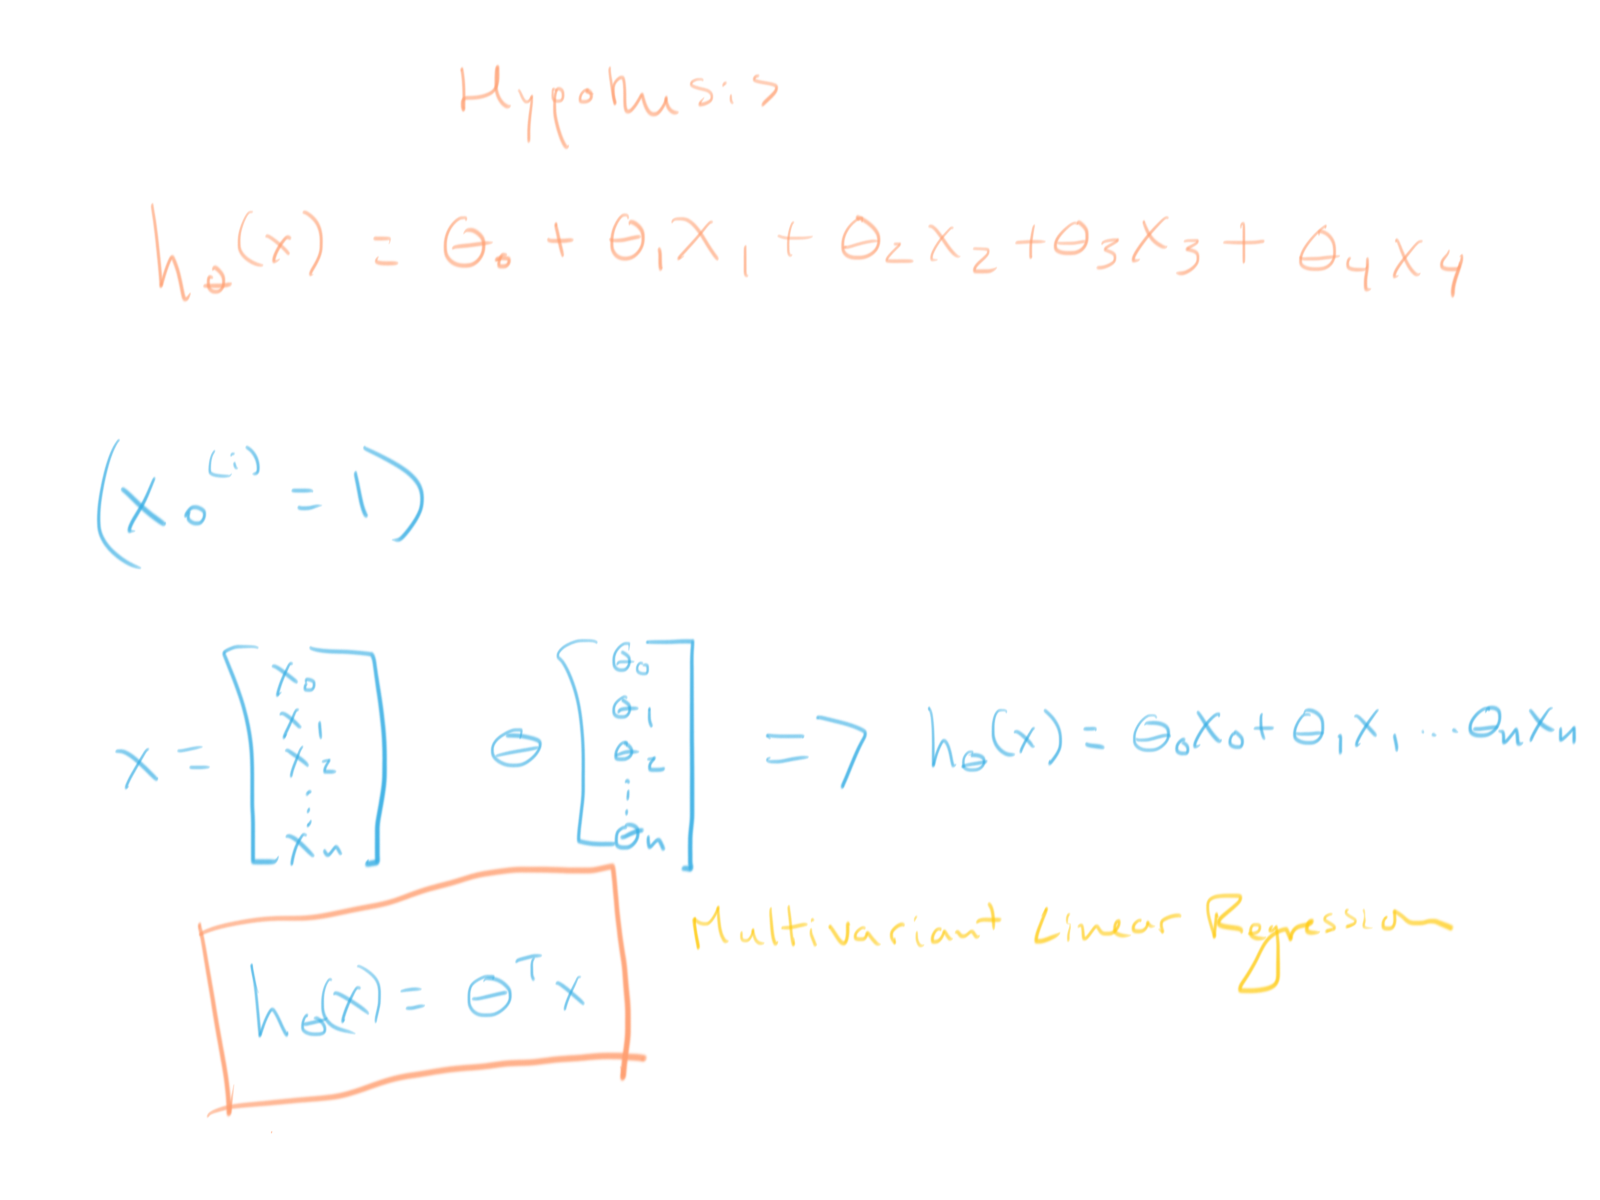 Hypothesis
hθ(x) = θ₀ + θ₁x₁ + θ₂x₂ + θ₃x₃ + θ₄x₄
(x₀⁽ⁱ⁾ = 1)
x = [x₀ x₁ x₂ ⋮ xₙ] θ [θ₀ θ₁ θ₂ ⋮ θₙ] => hθ(x) = θ₀x₀ + θ₁x₁ ... θₙxₙ
Multivariant Linear Regression
hθ(x) = θᵀx